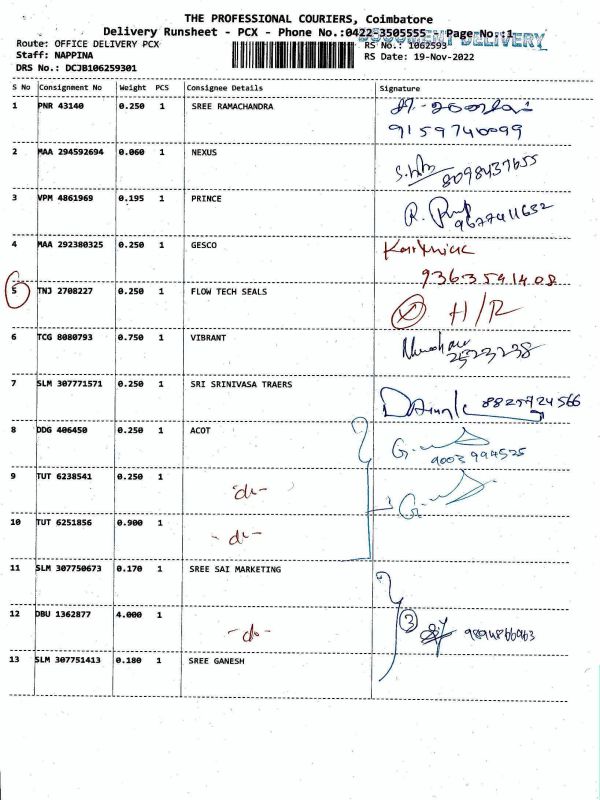 THE PROFESSIONAL COURIERS, Coimbatore
Delivery Runsheet - PCX - Phone No.:0422-3505555 - Page No.:1
DOCUMENT DELIVERY
Route: OFFICE DELIVERY PCX
RS No.: 1062593
Staff: NAPPINA
RS Date: 19-Nov-2022
DRS No.: DCJB106259301
S No Consignment No Weight PCS Consignee Details Signature
1 PNR 43140 0.250 1 SREE RAMACHANDRA
9159740099
2 MAA 294592694 0.060 1 NEXUS
8098437655
3 VPM 4861969 0.195 1 PRINCE
9677411632
4 MAA 292380325 0.250 1 GESCO Karthick
9363541408
5 TNJ 2708227 0.250 1 FLOW TECH SEALS X H/R
6 TCG 8080793 0.750 1 VIBRANT
2523238
7 SLM 307771571 0.250 1 SRI SRINIVASA TRAERS
8825724566
8 DDG 406450 0.250 1 ACOT
9003994525
9 TUT 6238541 0.250 1 -do-
10 TUT 6251856 0.900 1 -do-
11 SLM 307750673 0.170 1 SREE SAI MARKETING
12 DBU 1362877 4.000 1 -do- 3 9894866963
13 SLM 307751413 0.180 1 SREE GANESH